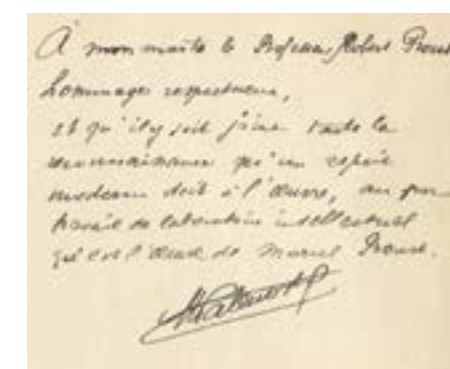 À mon maître le Professeur Robert Proust
hommages respectueux,
et qu'il y soit joint toute la
reconnaissance qu'un esprit
moderne doit à l'œuvre, au pur
travail de laboratoire intellectuel
qu'est l'œuvre de Marcel Proust.